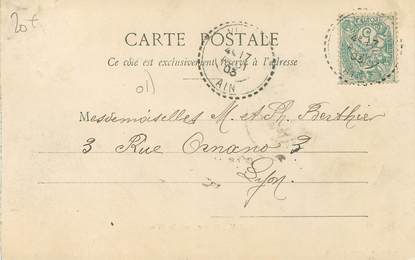 20+
CARTE POSTALE
Ce côté est exclusivement réservé à l'adresse
17
03
AIN
17
03
Mesdemoiselles M. et Ph. Berthier
3 Rue Ornano 3
Lyon